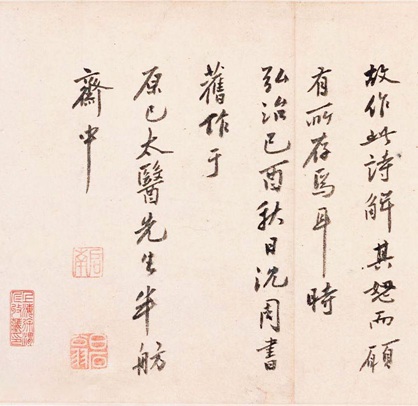 故作此詩解其怒而願
有所存焉耳時
弘治己酉秋日沈周書
舊作于
原己太醫先生半舫
齋中
啟南